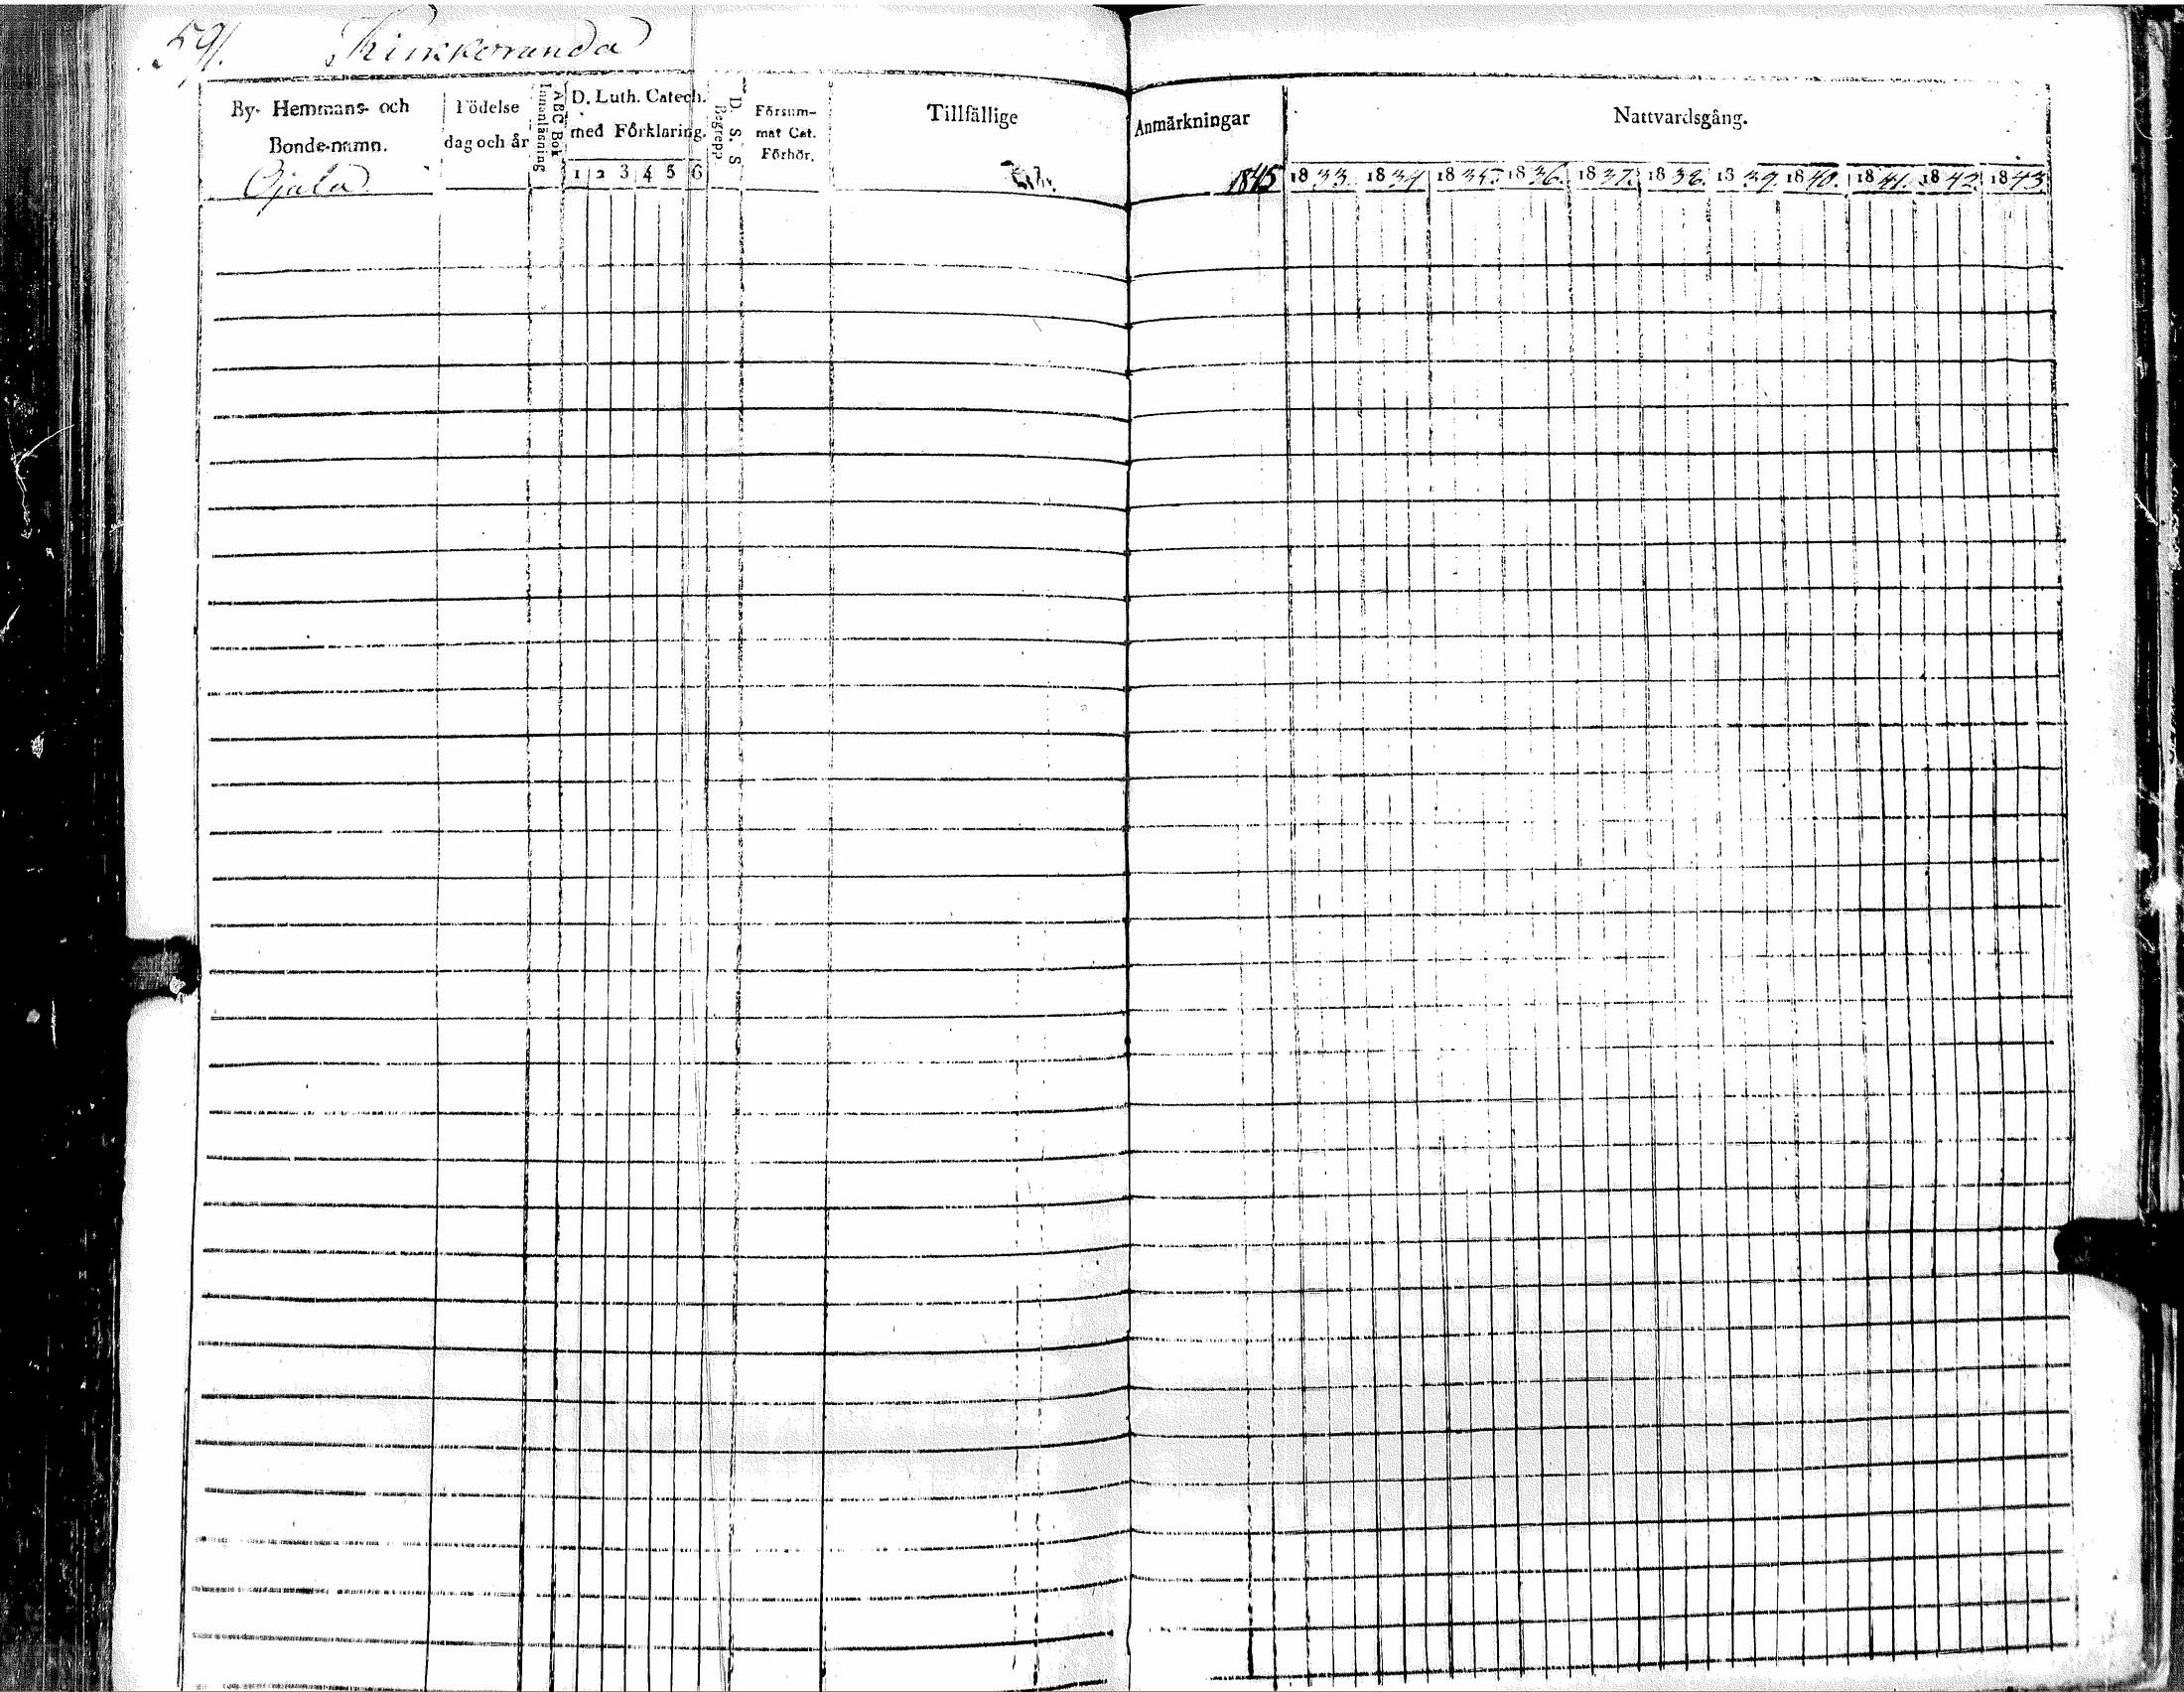 591. Kinkoranda
By- Hemmans- och
Bonde-namn.
Ojala
Födelse
dag och år
Innanläsning
ABC Bok
D. Luth. Catech.
med Förklaring.
1 2 3 4 5 6
Begrepp
D. S. S
Försum-
mat Cat.
Förhör.
Tillfällige
Anmärkningar
1845
Nattvardsgång.
1833. 1834 1835. 1836. 1837. 1838. 1839. 1840. 1841. 1842. 1843.